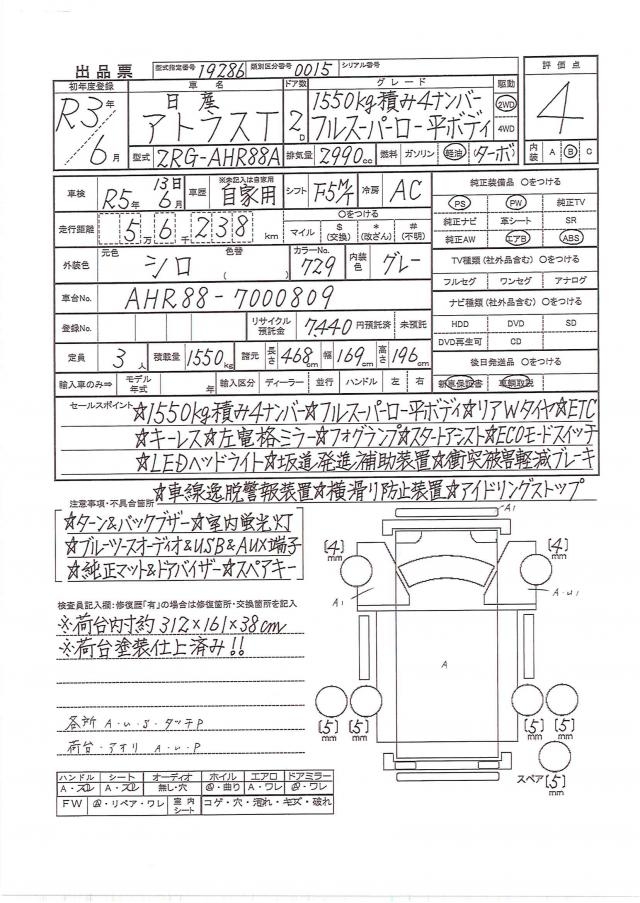 出品票 型式指定番号 19286 類別区分番号 0015 シリアル番号
初年度登録 車名 ドア数 グレード 駆動 評価点
R3年 6月 日産 アトラスT 2D 1550kg積み4ナンバー フルスーパーロー平ボディ 2WD 4WD 4
型式 2RG-AHR88A 排気量 2990cc 燃料 ガソリン 軽油 (ターボ) 内装 A B C
車検 R5年 13日 6月 車歴 ※未記入は自家用 自家用 シフト F5M/T 冷房 AC 純正装備品 ○をつける
PS PW 純正TV
走行距離 5万6千238km ○をつける マイル $(交換) *(改ざん) #(不明) 純正ナビ 革シート SR
純正AW エアB ABS
外装色 元色 シロ 色替 ( カラーNo. 729 内装色 グレー TV種類(社外品含む) ○をつける
フルセグ ワンセグ アナログ
車台No. AHR88-7000809 ナビ種類(社外品含む) ○をつける
登録No. リサイクル預託金 7,440円預託済 未預託 HDD DVD SD
DVD再生可 CD
定員 3人 積載量 1550kg 諸元 長さ 468cm 幅 169cm 高さ 196cm 後日発送品 ○をつける
輸入車のみ⇒ モデル年式 年 輸入区分 ディーラー 並行 ハンドル 左 右 新車保証書 車輌取説
セールスポイント ☆1550kg積み4ナンバー☆フルスーパーロー平ボディ☆リアWタイヤ☆ETC
☆キーレス☆左電格ミラー☆フォグランプ☆スタートアシスト☆ECOモードスイッチ
☆LEDヘッドライト☆坂道発進補助装置☆衝突被害軽減ブレーキ
☆車線逸脱警報装置☆横滑り防止装置☆アイドリングストップ
注意事項・不具合箇所
☆ターン&バックブザー☆室内蛍光灯
☆ブルーツースオーディオ&USB&AUX端子
☆純正マット&ドアバイザー☆スペアキー
検査員記入欄:修復歴「有」の場合は修復箇所・交換箇所を記入
※荷台内寸約312×161×38cm
※荷台塗装仕上済み!!
各所 A・U・S・タッチP
荷台・アオリ A・U・P
A1
[4]mm [4]mm
A1 A・U1
A
[5]mm [5]mm [5]mm [5]mm
スペア[5]mm
ハンドル シート オーディオ ホイル エアロ ドアミラー
A・スレ A・スレ 無し・穴 ・曲り A・ワレ ・ワレ
FW ・リペア・ワレ 室内シート コゲ・穴・汚れ・キズ・破れ